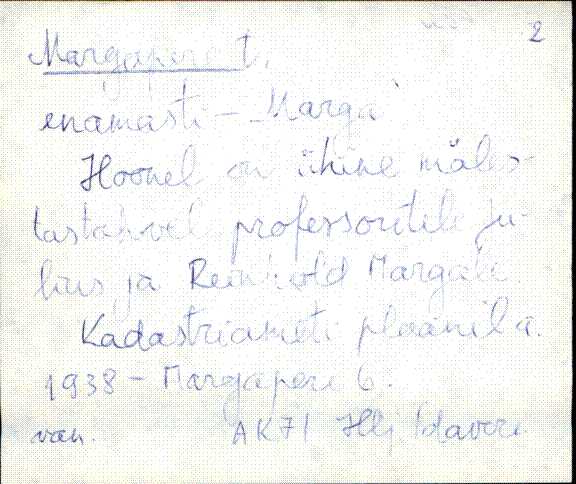 2
Margapere t.
enamasti – "Marga"
Hoonel on ühine mäles-
tastahvel professoritele Ju-
lius ja Reinhold Margale.
Kadastriameti plaanil a.
1938 – Margapere 6.
van. AK71 Hlj. Idavere